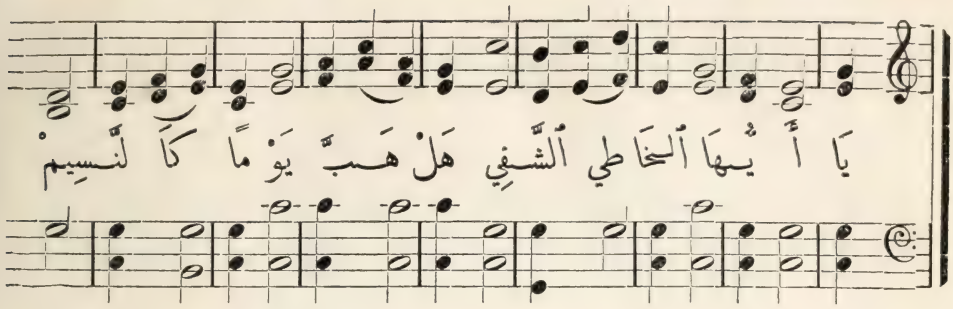 يَا أَ يُّـهَا ٱلـخَا طي ٱلشَّـفِي هَلْ هَـبَّ يَوْ مًا كَا لنَّـسِيمْ